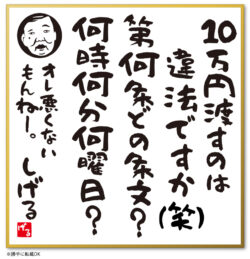 10万円渡すのは
違法ですか(笑)
第何条どの条文?
何時何分何曜日?
オレ悪くない
もんねー。しげる
げる
※勝手に転載OK